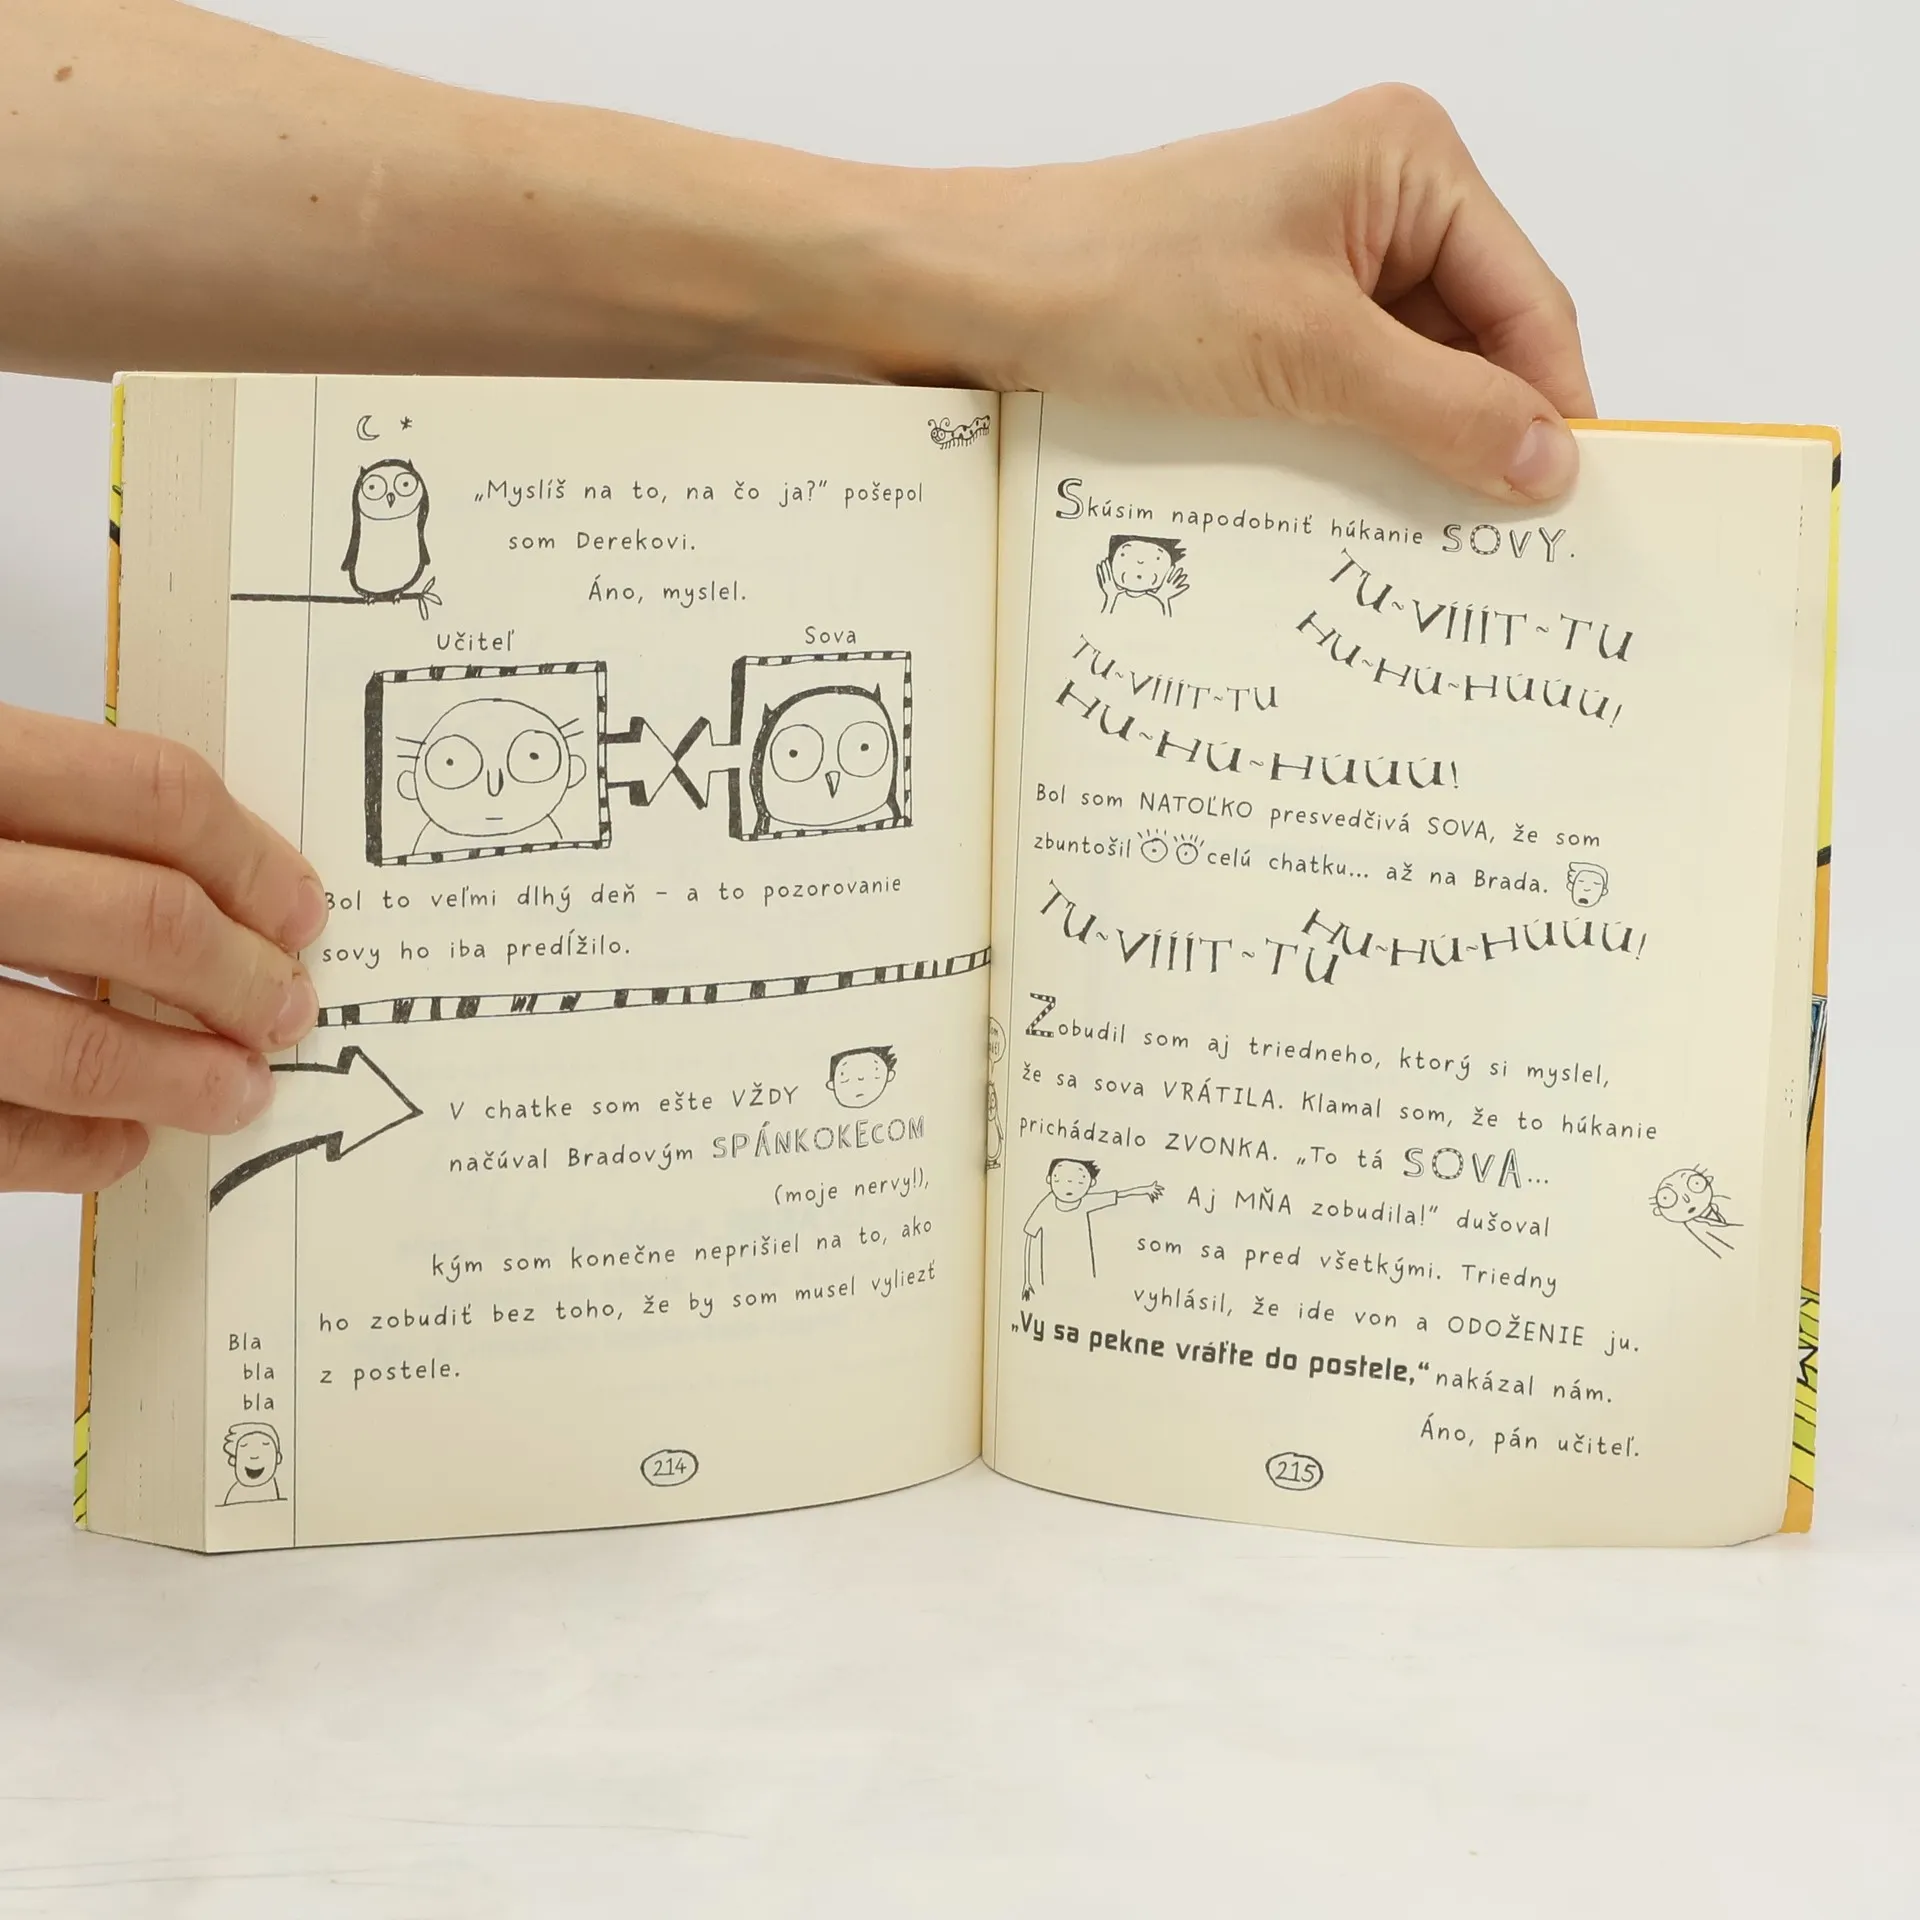 „Myslíš na to, na čo ja?“ pošepol
som Derekovi.
Áno, myslel.
Učiteľ
Sova
Bol to veľmi dlhý deň – a to pozorovanie
sovy ho iba predĺžilo.
V chatke som ešte VŽDY
načúval Bradovým SPÁNKOKECOM
(moje nervy!),
kým som konečne neprišiel na to, ako
ho zobudiť bez toho, že by som musel vyliezť
z postele.
Bla
bla
bla
214
Skúsim napodobniť húkanie SOVY.
TU~VÍÍÍT~TU
HU~HÚ~HÚÚÚ!
TU~VÍÍÍT~TU
HU~HÚ~HÚÚÚ!
Bol som NATOĽKO presvedčivá SOVA, že som
zbuntošil celú chatku... až na Brada.
TU~VÍÍÍT~TU
HU~HÚ~HÚÚÚ!
Zobudil som aj triedneho, ktorý si myslel,
že sa sova VRÁTILA. Klamal som, že to húkanie
prichádzalo ZVONKA. „To tá SOVA...
Aj MŇA zobudila!“ dušoval
som sa pred všetkými. Triedny
vyhlásil, že ide von a ODOŽENIE ju.
„Vy sa pekne vráťte do postele,“ nakázal nám.
Áno, pán učiteľ.
215